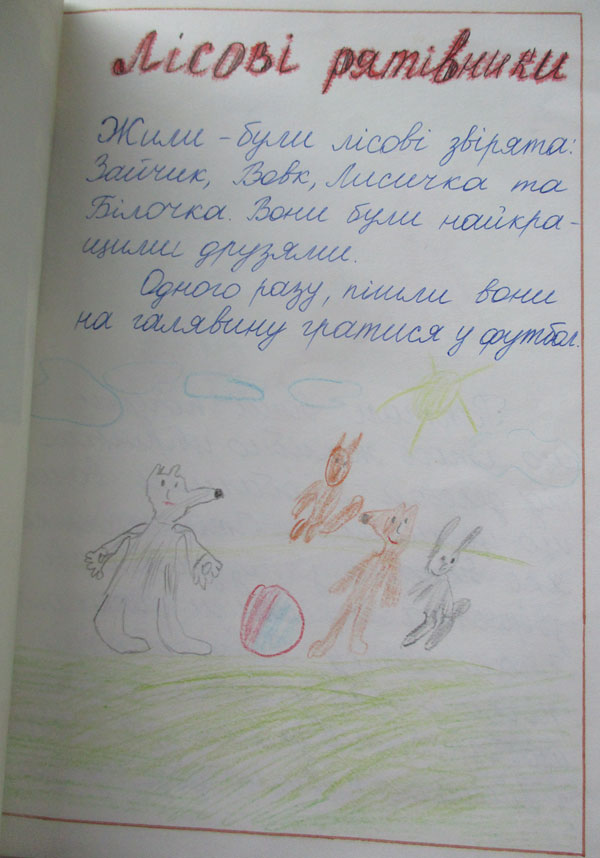 Лісові рятівники
Жили-були лісові звірята:
Зайчик, Вовк, Лисичка та
Білочка. Вони були найкра-
щими друзями.
Одного разу, пішли вони
на галявину гратися у футбол.